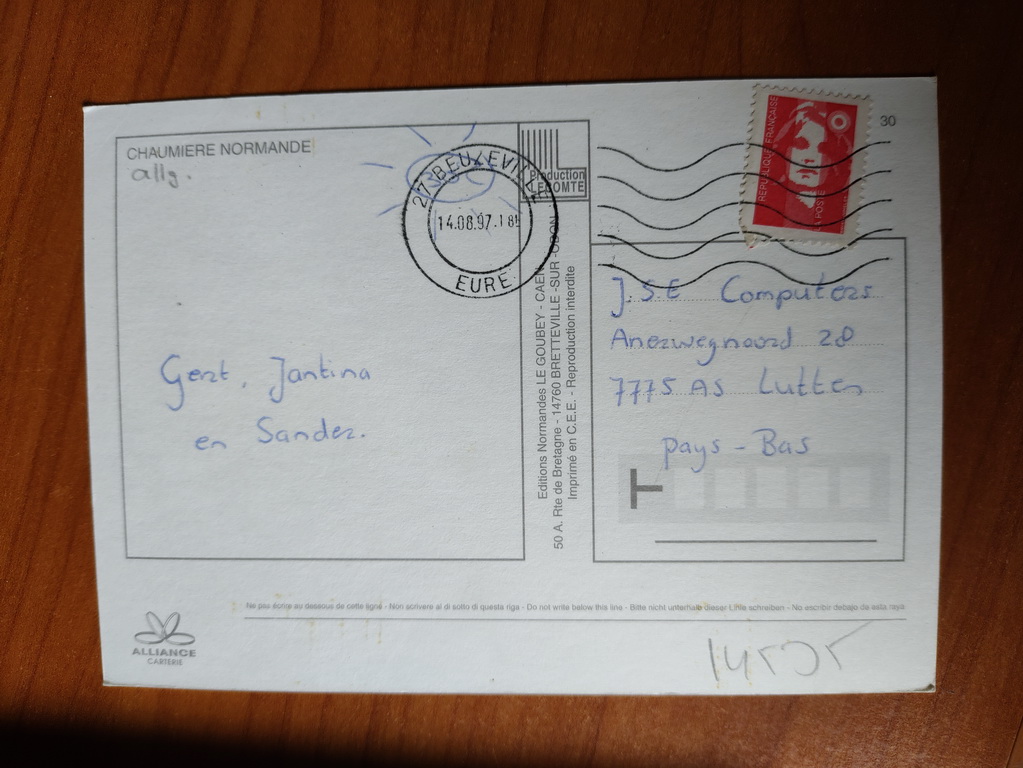 CHAUMIERE NORMANDE
allg.
27 BEUZEVILLE
14.08.97.18
EURE
Production
LECOMTE
REPUBLIQUE FRANCAISE
LA POSTE
30
Gert, Jantina
en Sander.
Editions Normandes LE GOUBEY - CAEN
50 A. Rte de Bretagne - 14760 BRETTEVILLE -SUR -ODON
Imprimé en C.E.E. - Reproduction interdite
J.S.E Computers
Anerwegnoord 28
7775 AS Lutten
pays - Bas
T
Ne pas écrire au dessous de cette ligne - Non scrivere al di sotto di questa riga - Do not write below this line - Bitte nicht unterhalb dieser Linie schreiben - No escribir debajo de esta raya
ALLIANCE
CARTERIE